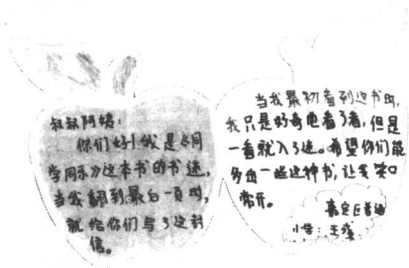 叔叔阿姨：
你们好！我是《同
学同乐》这本书的书迷，
当我翻到最后一页时，
就给你们写了这封
信。
当我最初看到这书时，
我只是好奇地看了看，但是
一看就入了迷。希望你们能
多出一些这种书，让我笑口
常开。
嘉定区
小学：王